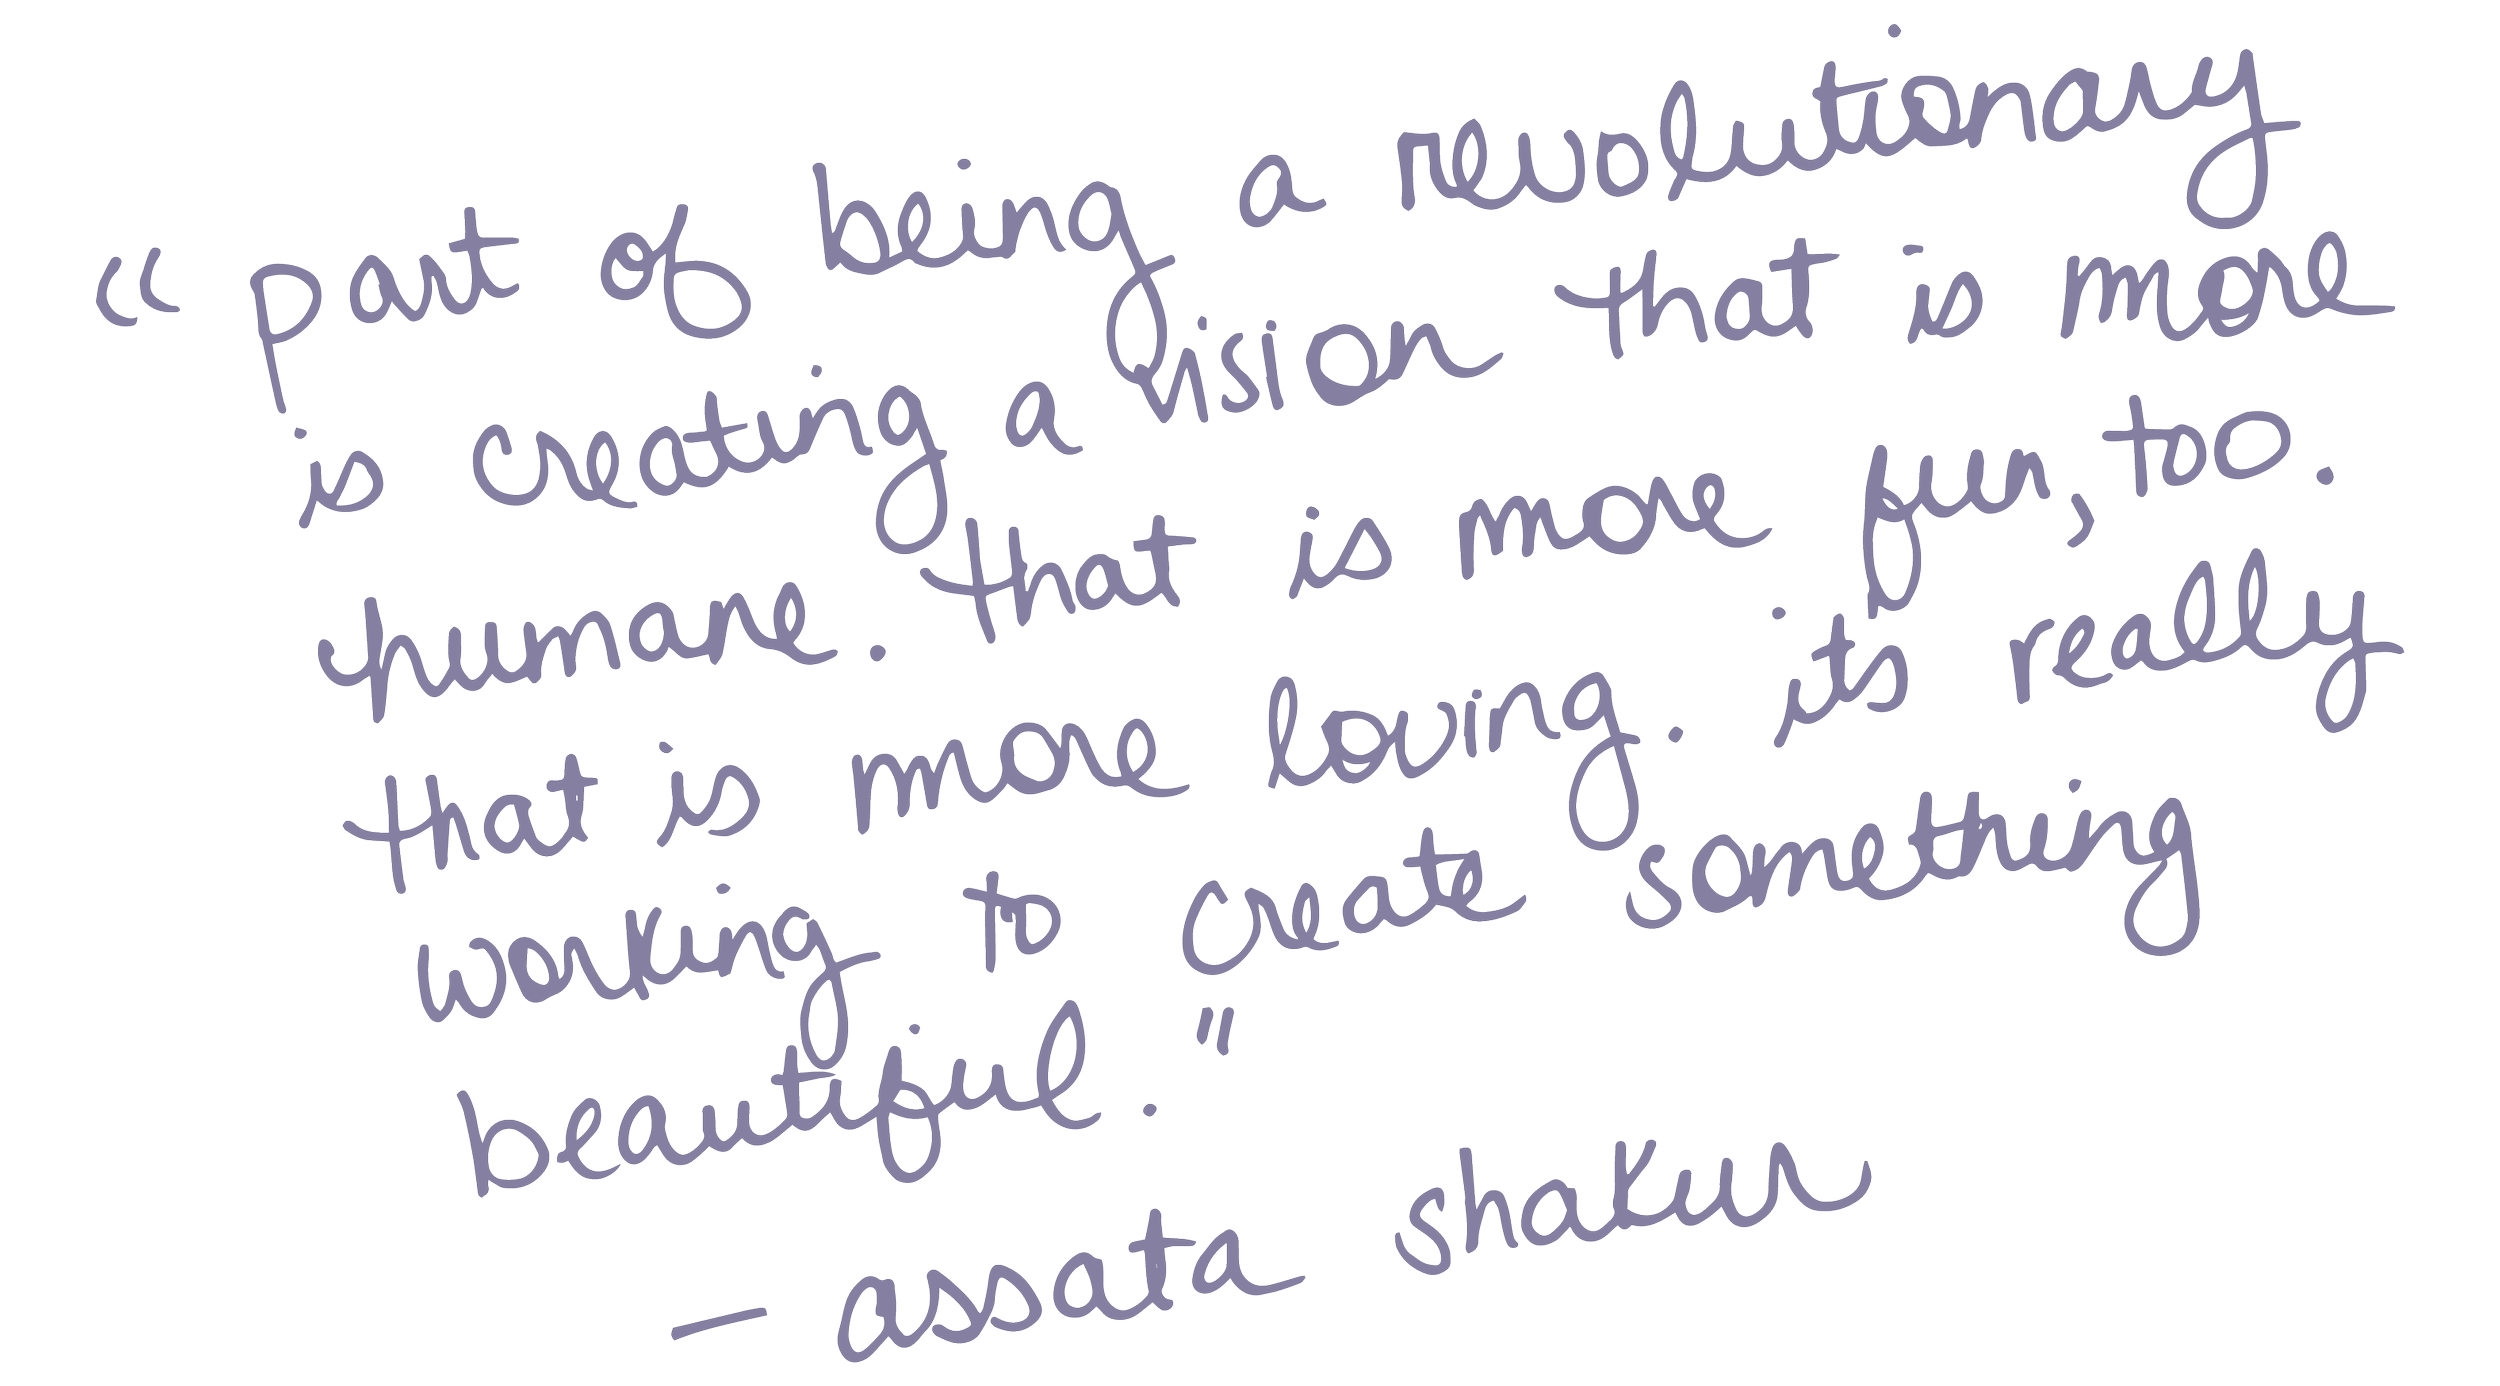 “ Part of being a revolutionary
is creating a vision that is more
humane. that is more fun, too.
that is more loving. it's really
working to create something
beautiful. "
— assata shakur